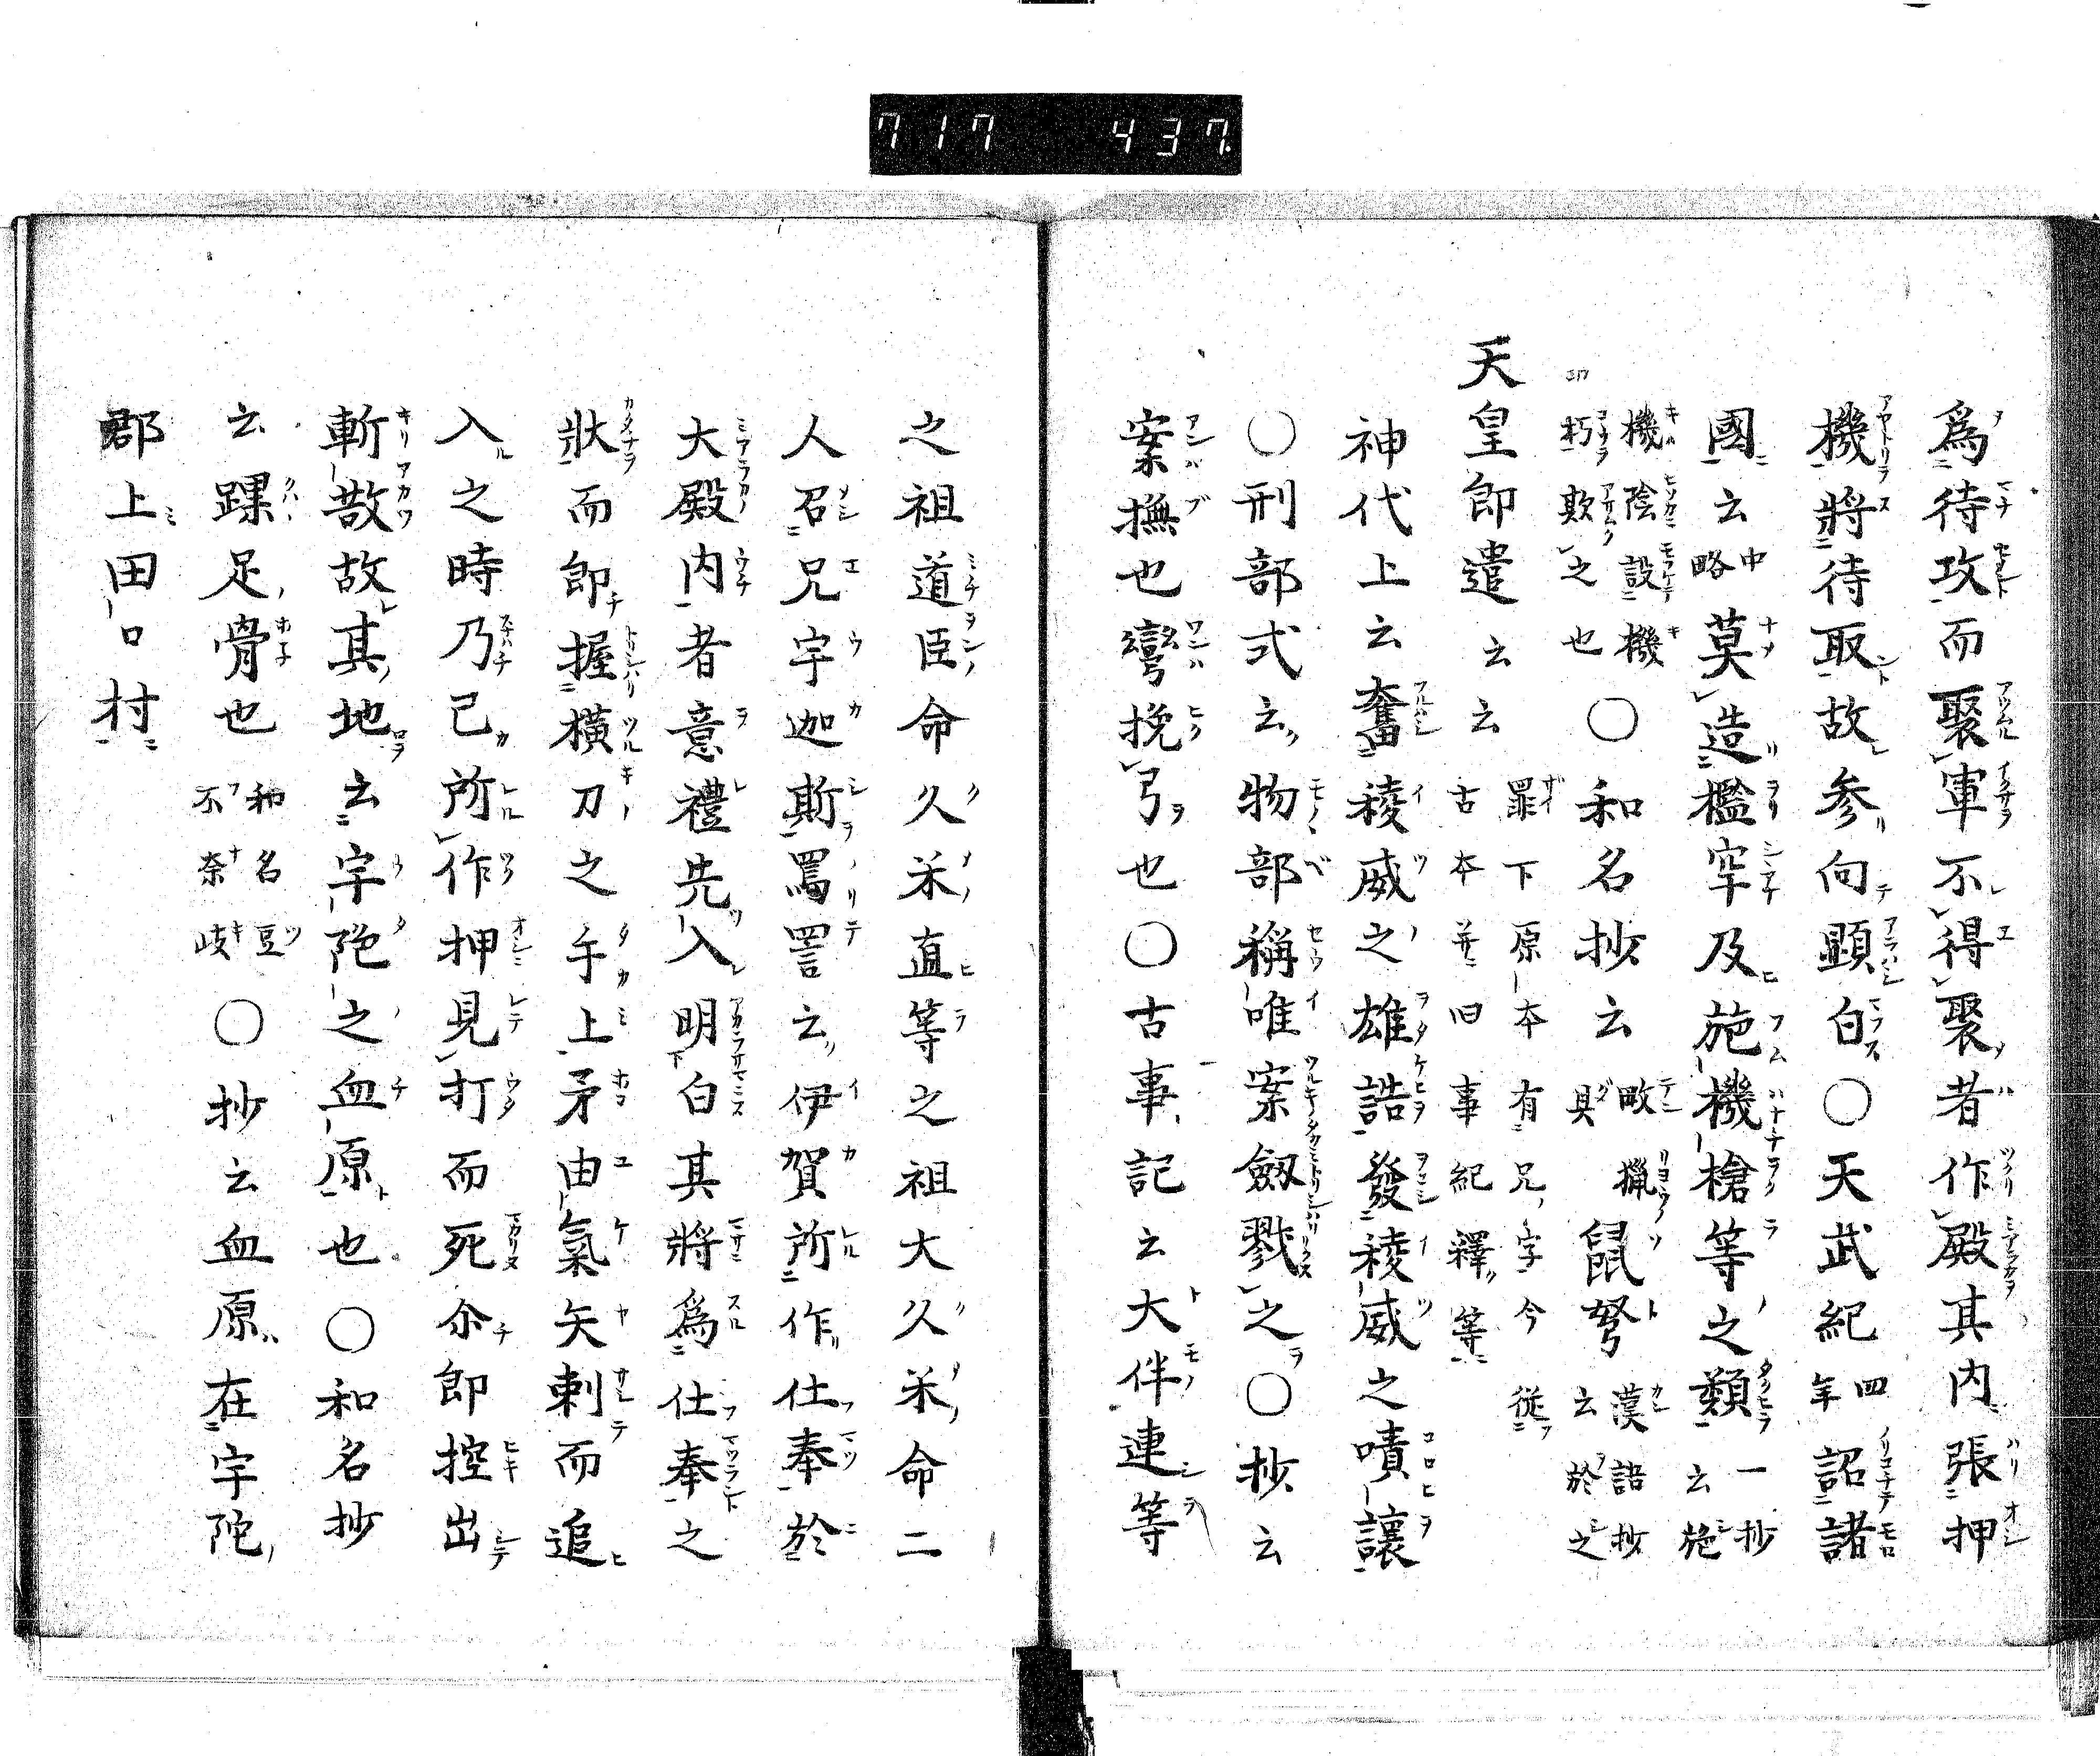 717 437
爲待攻而聚軍不得聚者作殿其内張押
機將待取故参向顕白〇天武紀四年詔諸
國云中略莫造檻穽及施機槍等之類一抄云施
機陰設機
朽欺之也〇和名抄云畋猟具鼠弩漢語抄云於之
天皇即遣云云罪下原本有兄字今従
古本并旧事紀釋等
神代上云奮稜威之雄誥發稜威之嘖讓
〇刑部式云物部稱唯案劔戮之〇抄云
案撫也彎挽弓也〇古事記云大伴連等
之祖道臣命久米直等之祖大久米命二
人召兄宇迦斯罵詈云伊賀所作仕奉於
大殿内者意禮先入明白其將爲仕奉之
狀而即握横刀之手上矛由氣矢刺而追
入之時乃己所作押見打而死尒即控出
斬散故其地云宇陀之血原也〇和名抄
云踝足骨也和名豆不奈岐〇抄云血原在宇陀
郡上田口村